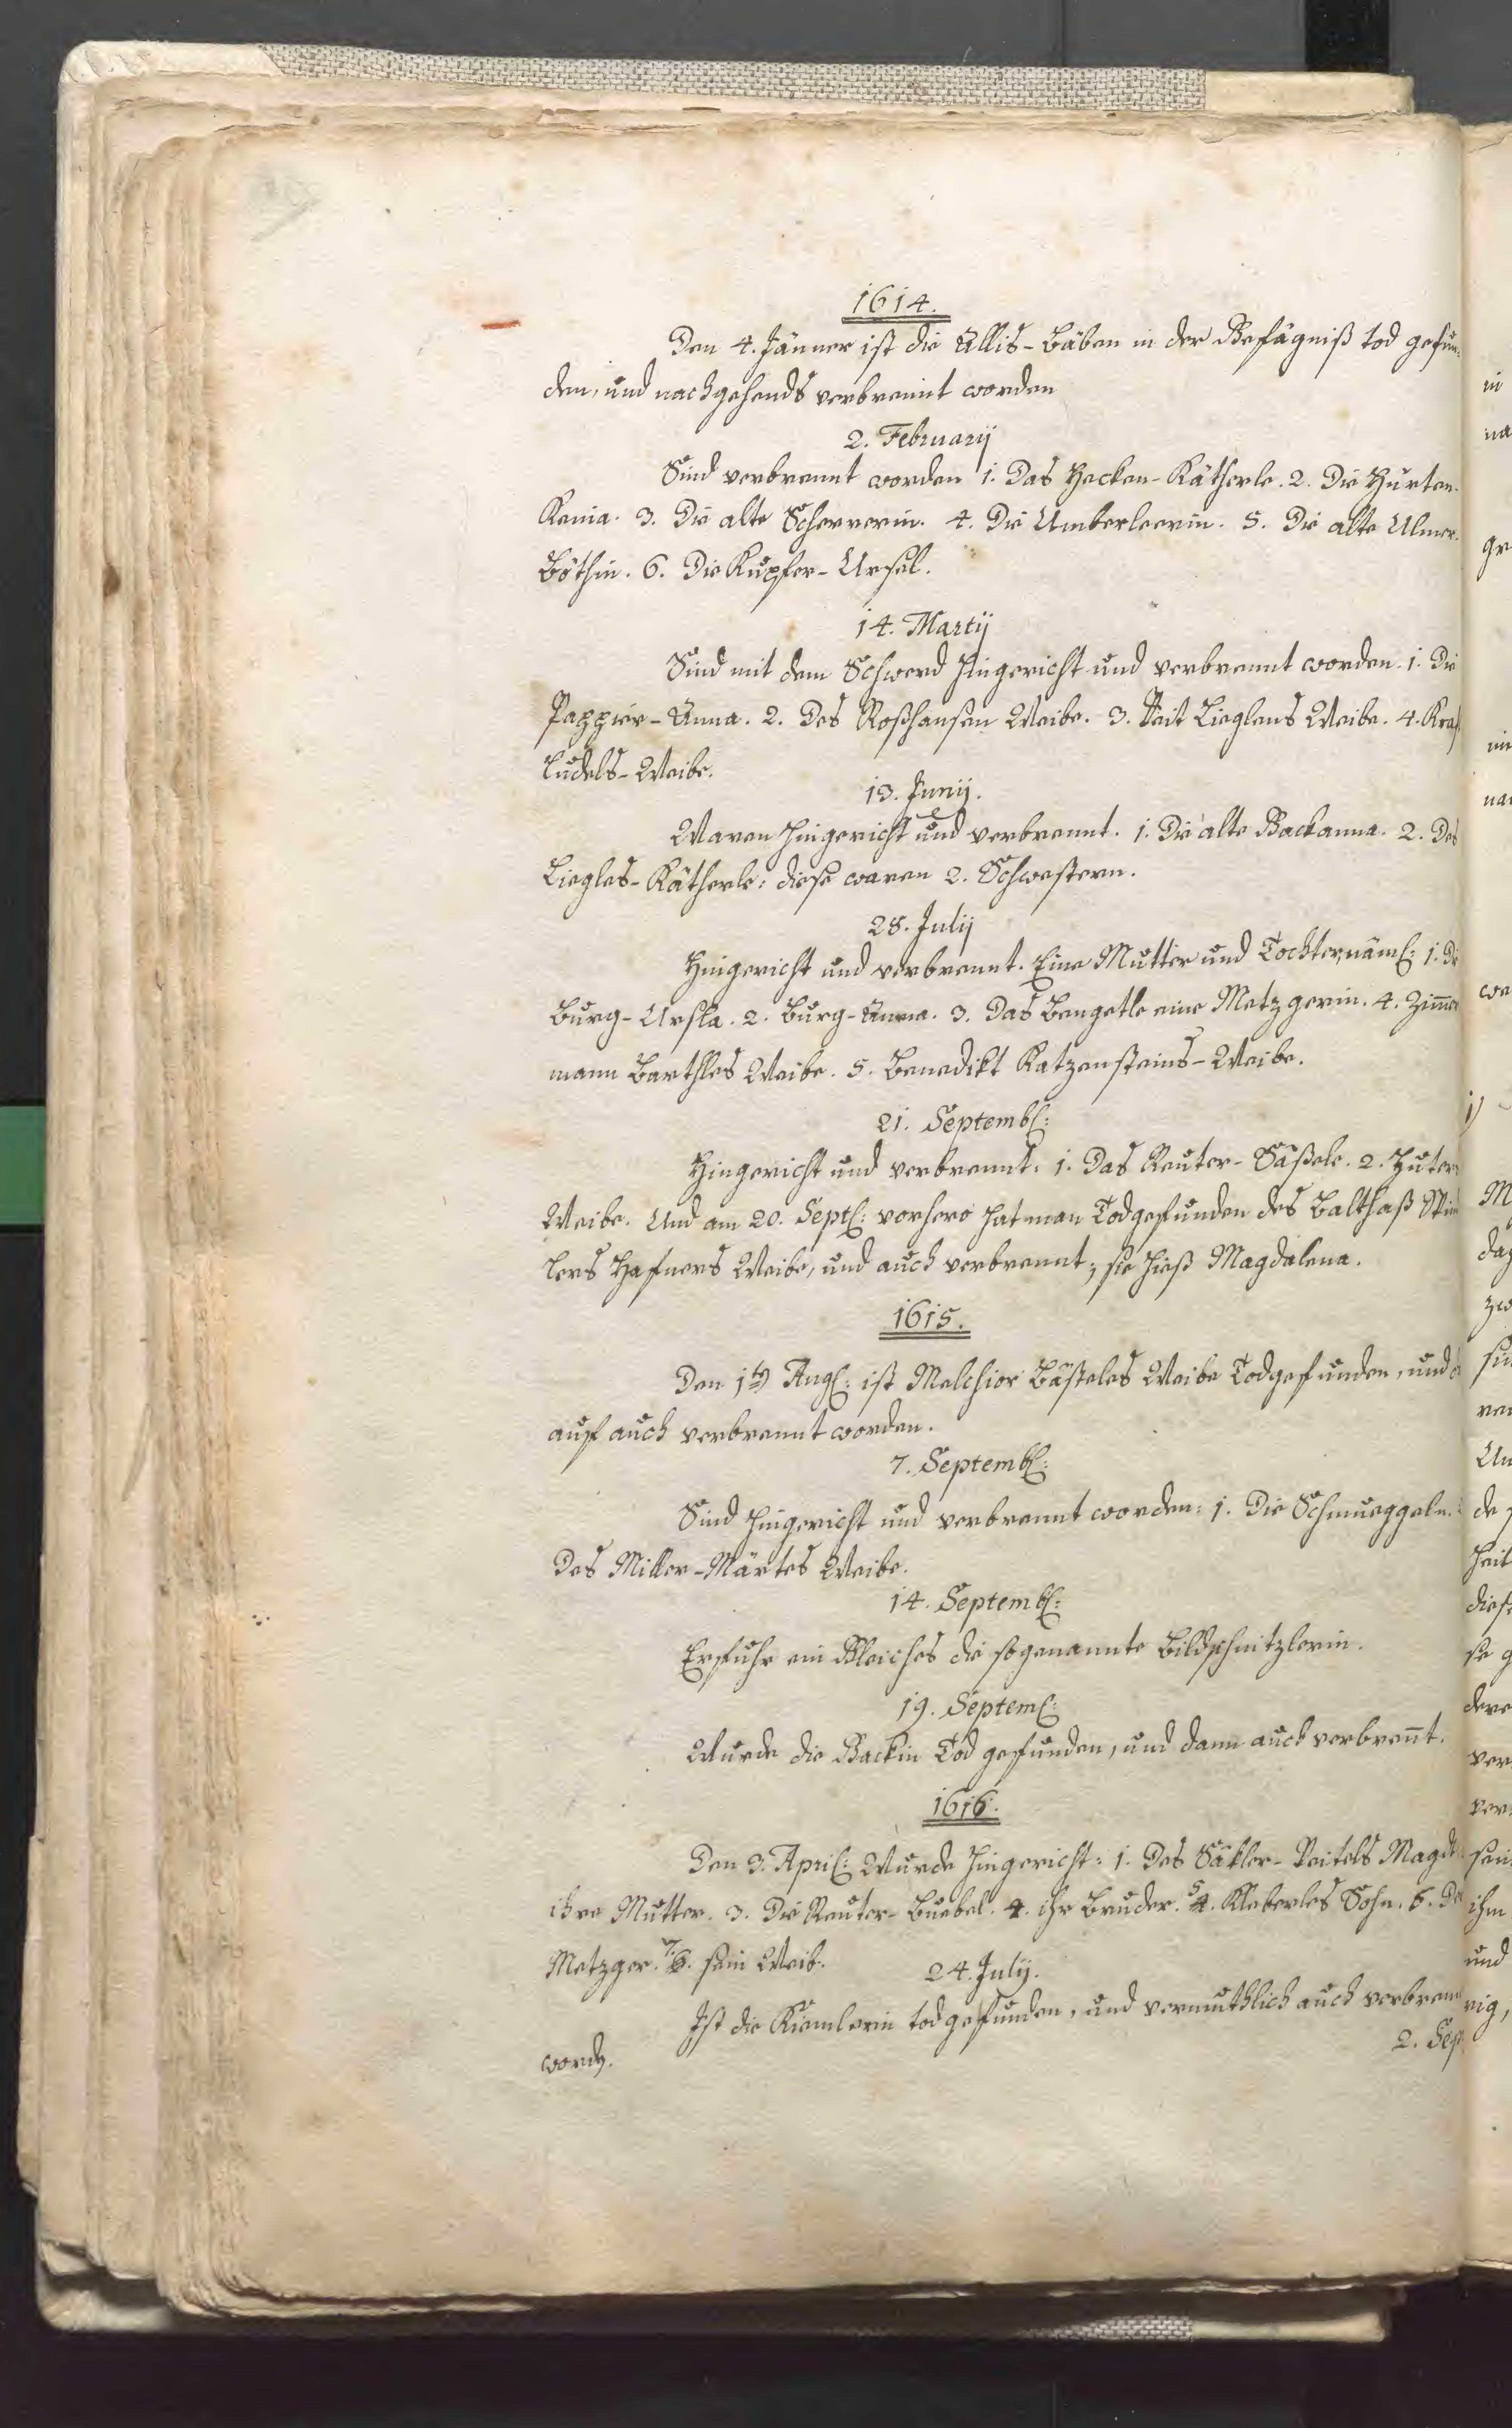 1614.
Den 4. Jänner ist die Ällis-Bäben in der Gefägniß tod gefun
den, und nachgehends verbrennt worden
2. Februarij
Sind verbrennt worden 1. Das Hecken-Kätherle. 2. Die Hurten.
Kenia. 3. Die alte Scherrerin. 4. Die Umberleerin. 5. Die alte Ulmer.
Böthin. 6. Die Kupfer-Ursel.
14. Martij
Sind mit dem Schwerd hingericht und verbrennt worden. 1. Die
Pappier-Anna. 2. Des Roßhansen Weibe. 3. Veit Zieglens Weibe. 4.
Ludels-Weibe.
13. Junij.
Waren hingericht und verbrennt. 1. Die alte Backanna. 2. Des
Zieglers-Kätherle: diese waren 2. Schwestern.
28. Julij
Hingericht und verbrennt. Eine Mutter und Tochter, näml: 1. Die
Burg-Ursla. 2. Burg-Anna. 3. Das Bengetle eine Metzgerin. 4. Zim̄er
mann Barthles Weibe. 5. Benedikt Katzensteins-Weibe.
21. Septembr:
Hingericht und verbrennt: 1. Das Reuter-Säßele. 2. Huter
Weibe. Und am 20. Septr: vorhero hat man Tod gefunden des Balthaß
lers Hafners Weibe, und auch verbrennt; sie hieß Magdalena.
1615.
Den 1ten Aug: ist Melchior Bästeles Weibe Tod gefunden, und
auf auch verbrennt worden.
7. Septembr:
Sind hingericht und verbrennt worden: 1. Die
Des Miller-Märtes Weibe.
14. Septembr:
Erfuhr ein Gleiches die sogenannte Bildschnitzlerin.
19. Septemr:
Wurde die Backin Tod gefunden, und dann auch verbren̄t.
1616.
Den 3. April: Wurde hingericht: 1. Des Säkler-Veitels Magd
ihre Mutter. 3. Die Reuter-Buebel. 4. ihr Bruder. 5. Kleberles Sohn. 6. Der
Metzger. 7. sein Weib.
24. Julij.
Ist die Kiemlerin tod gefunden, und vermuthlich auch verbrennt
worden.
2. Sep